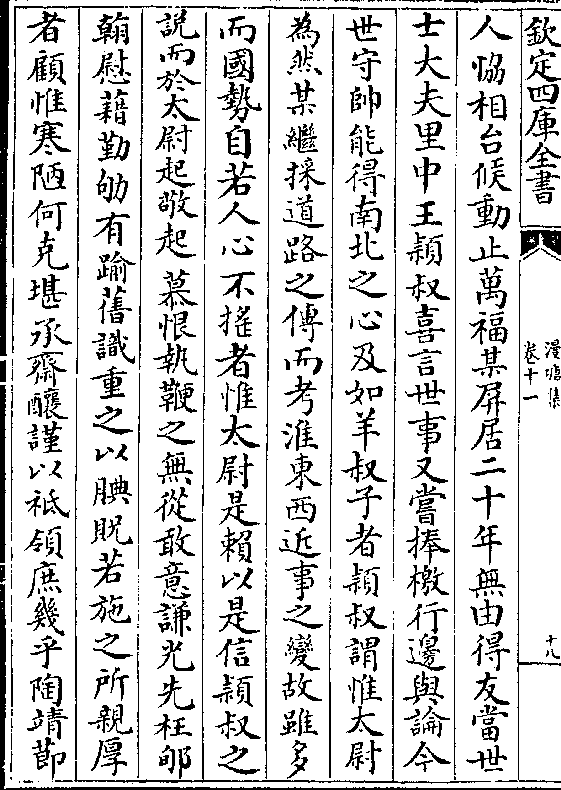 欽定四庫全書
漫塘集
卷十一
十八
人恊相台候動止萬福某屏居二十年無由得友當世
士大夫里中王頴叔喜言世事又嘗捧檄行邊與論今
世守帥能得南北之心及如羊叔子者頴叔謂惟太尉
為然某繼採道路之傳而考淮東西近事之變故雖多
而國勢自若人心不揺者惟太尉是賴以是信頴叔之
説而於太尉起敬起慕恨執鞭之無從敢意謙光先枉郇
翰慰藉勤劬有踰舊識重之以腆貺若施之所親厚
者顧惟寒陋何克堪承齋釀謹以祗領庶幾乎陶靖節